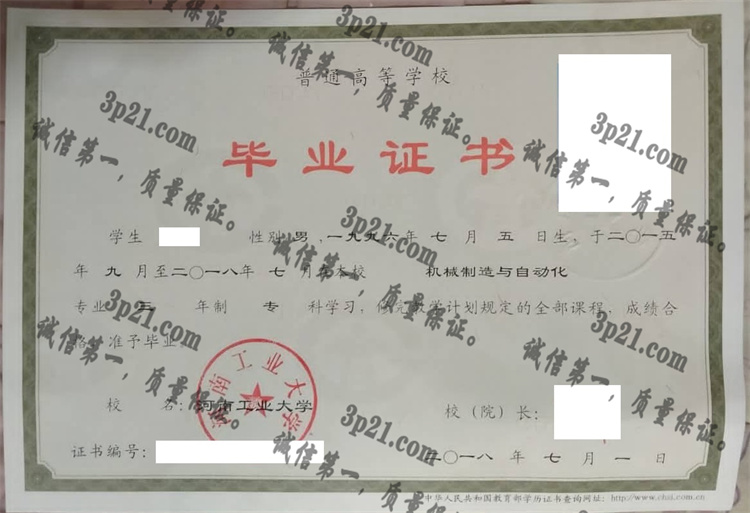 普通高等学校
毕业证书
学生 性别 男 ,一九九六年 七 月 五 日生，于二〇一五
年 九 月至二〇一八年 七 月在本校 机械制造与自动化
专业 三 年制 专 科学习，修完教学计划规定的全部课程，成绩合
格，准予毕业。
校 名：河南工业大学 校（院）长：
证书编号： 二〇一八 年 七 月 一 日
中华人民共和国教育部学历证书查询网址：http://www.chsi.com.cn
河南工业大学
3p21.com
诚信第一，质量保证。
3p21.com
诚信第一，质量保证。
3p21.com
诚信第一，质量保证。
3p21.com
诚信第一，质量保证。
3p21.com
诚信第一，质量保证。
3p21.com
诚信第一，质量保证。
3p21.com
诚信第一，质量保证。